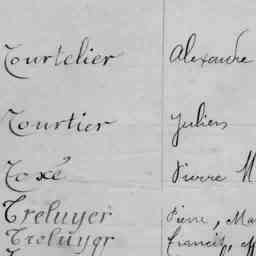 Tourtelier Alexandre
Tourtier Julien
Toxé Pierre M
Treluyer Pierre, Ma
Treluyer Francis, M